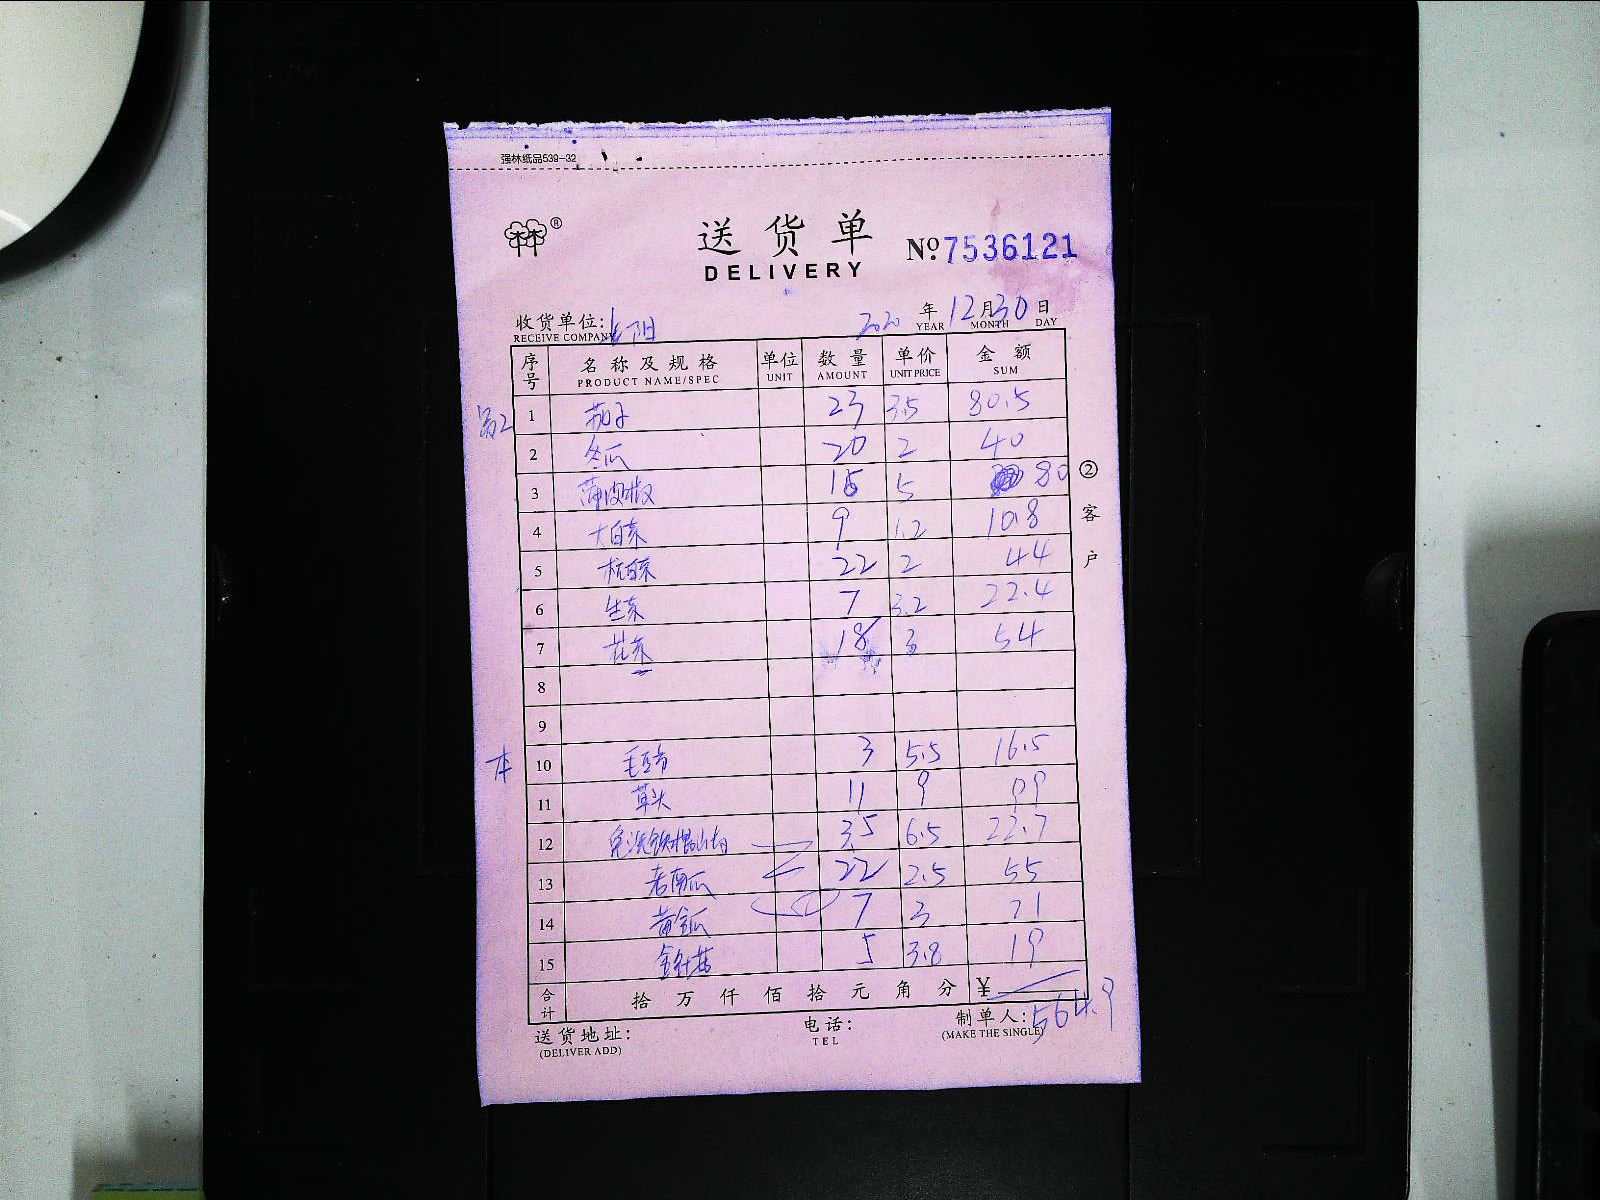 强林纸品539-32
送货单
DELIVERY
№ 7536121
收货单位: 2020年12月30日
RECEIVE COMPANY YEAR MONTH DAY
序号 名称及规格 单位 数量 单价 金额
PRODUCT NAME/SPEC UNIT AMOUNT UNIT PRICE SUM
1 茄子 23 3.5 80.5
2 冬瓜 20 2 40
3 薄皮椒 16 5 80
4 大白菜 9 1.2 10.8
5 杭白菜 22 2 44
6 生菜 7 3.2 22.4
7 花菜 18 3 54
8
9
本 10 毛豆节 3 5.5 16.5
11 草头 11 9 99
12 免洗铁棍山药 3.5 6.5 22.7
13 老南瓜 22 2.5 55
14 黄金瓜 7 3 21
15 金针菇 5 3.8 19
合计 拾万仟佰拾元角分 ¥ 564.9
送货地址: 电话: 制单人:
(DELIVER ADD) TEL (MAKE THE SINGLE)
② 客户